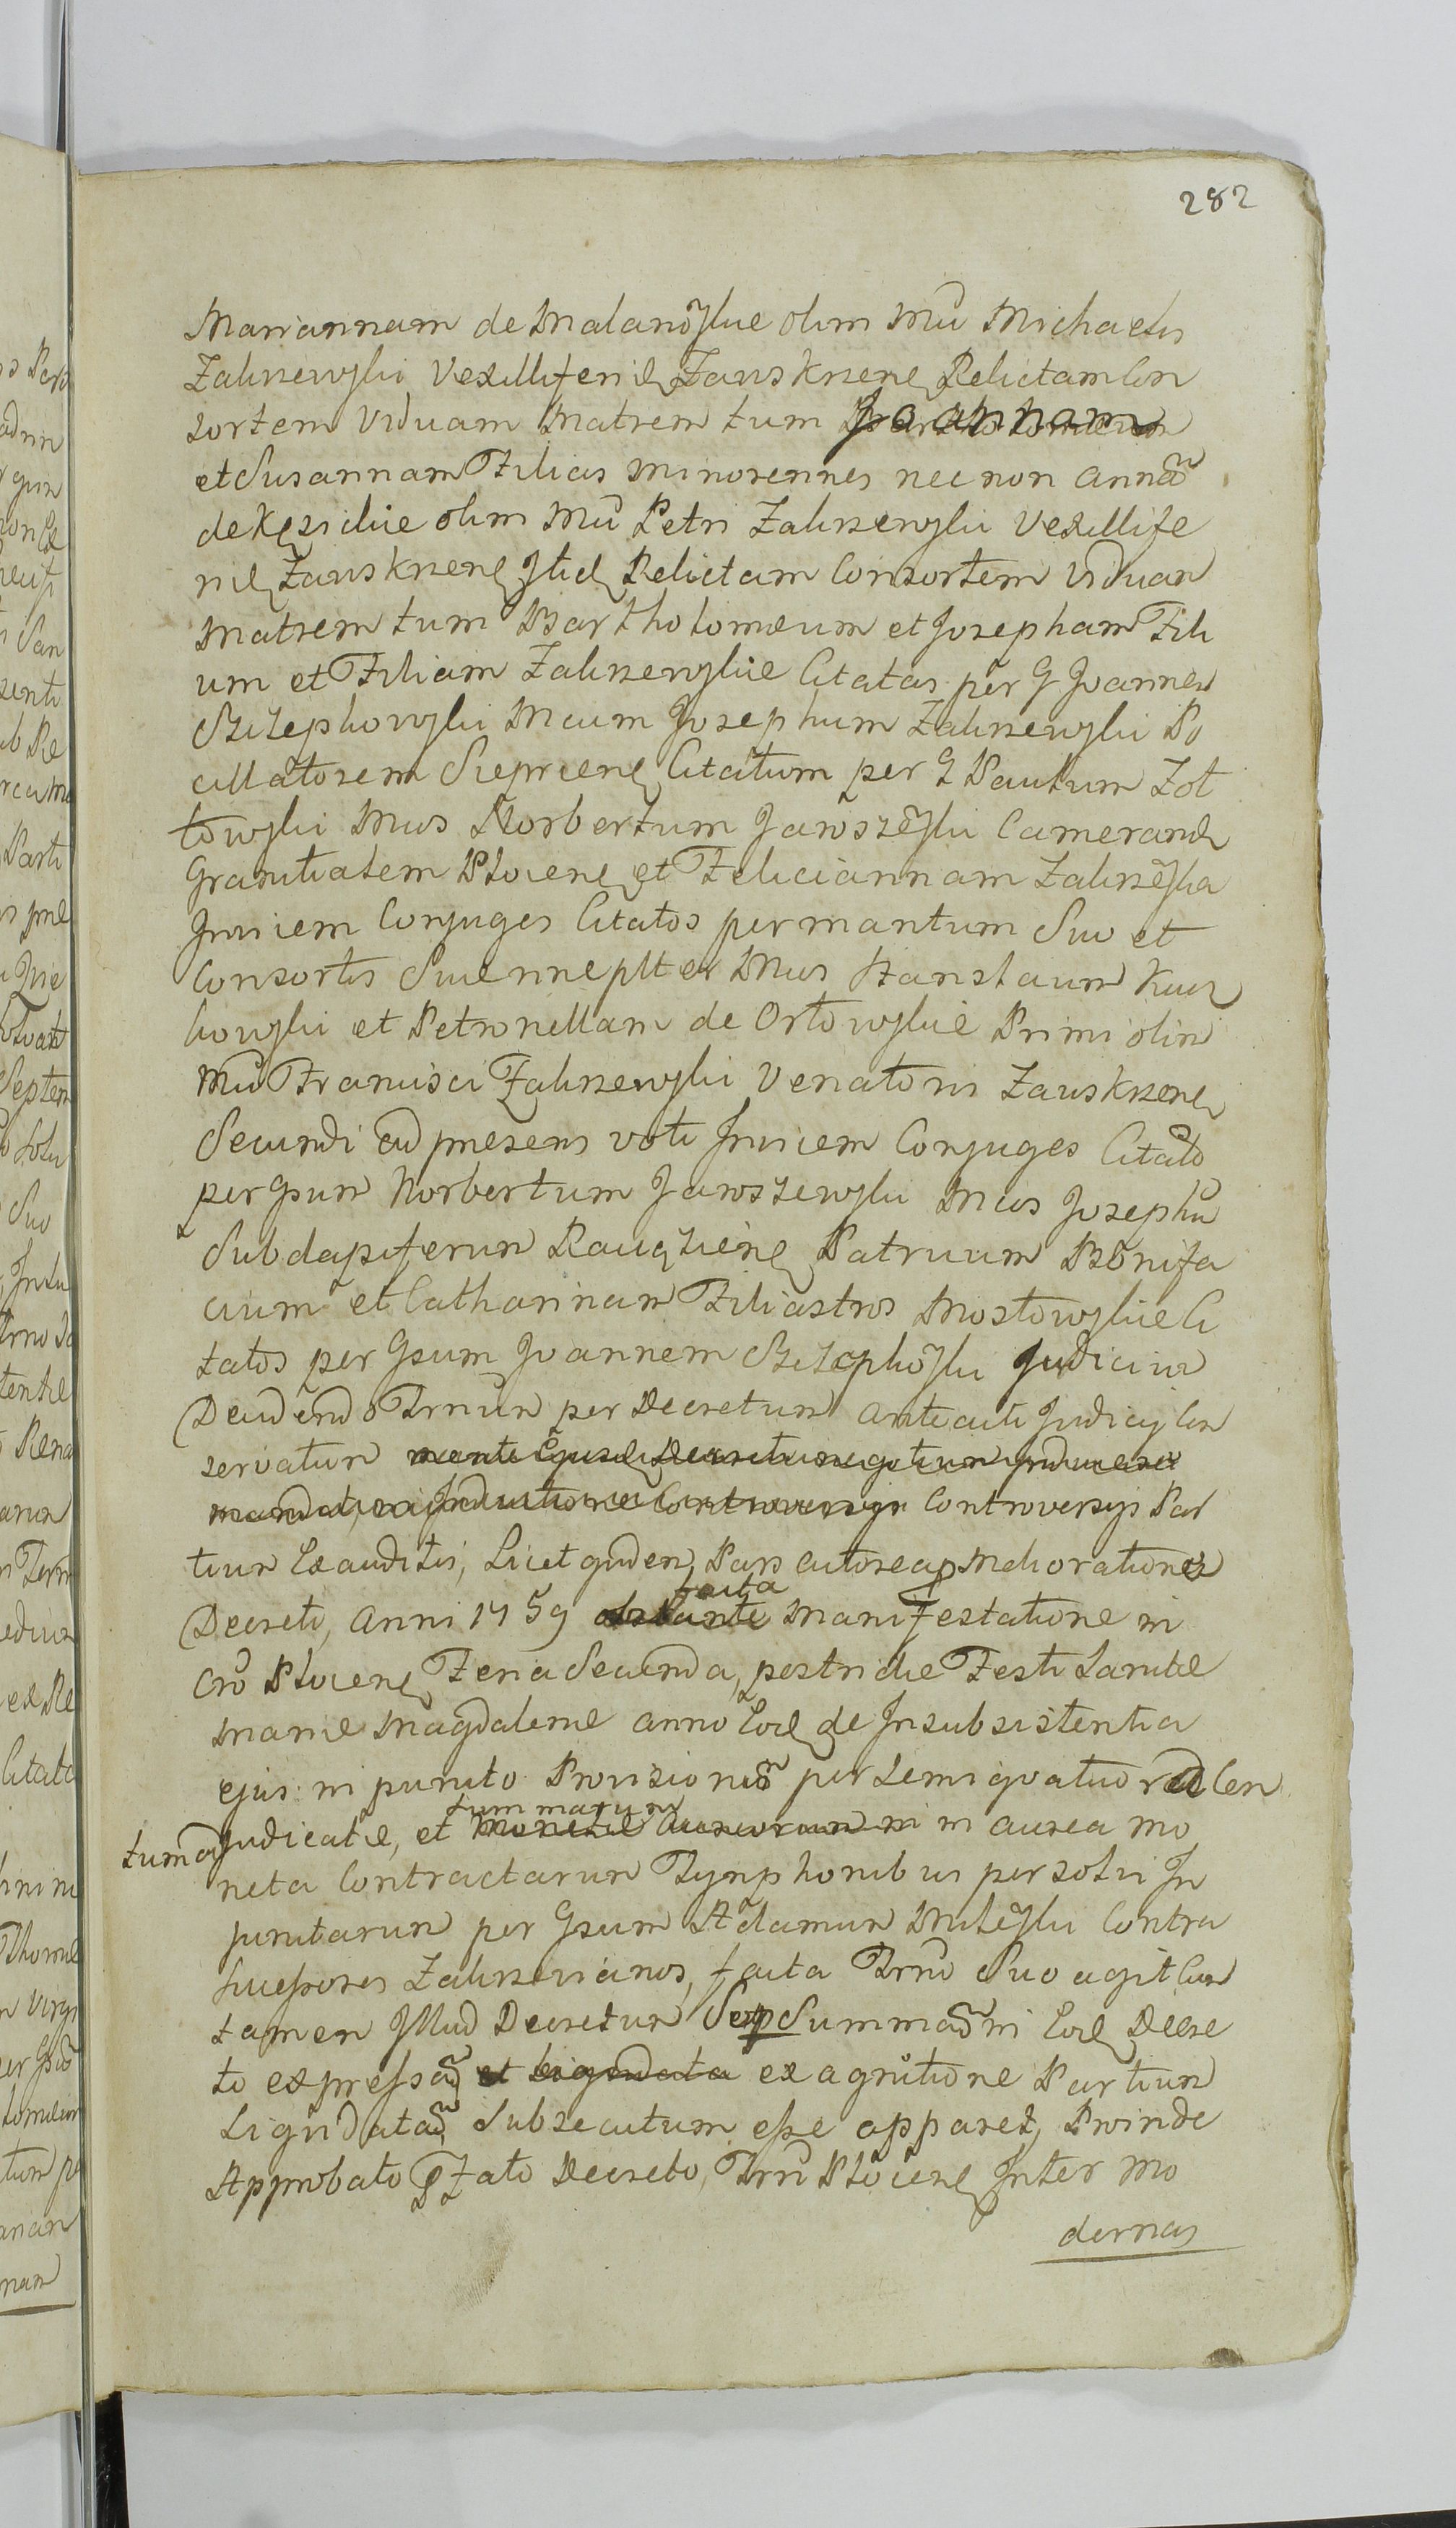 282
Mariannam de Malanoskie olim Mci Michaelis
Zakrzewski Vexilliferi Zawskrzene Relictam Con
sortem Viduam Matrem tum Joannam
et Susannam Filias Minorennes nec non Annã
de Kęsickie olim Mci Petri Zakrzewski Vexillife
ri Zawskrzene Itid Relictam Consortem Viduam
Matrem tum Bartholomæum et Josepham Fili
um et Filiam Zakrzewskie Citatas per G Joannem
Mcum Josephum Zakrzewski Po
cillatorem Sieprcene Citatum per G Paulum Zol
towski Mcos Norbertum Jaroszeski Camerand
Granitialem Plocene et Feliciannam Zakrzeska
Invicem Conjuges Citatos per maritum Suo et
Consortis Suæ nne Mcos Stanislaum Kucz
kowski et Petronellam de Orlowskie Primi olim
Mci Francisci Zakrzewski Venatoris Zawskrzene
Secundi ad præsens voti Invicem Conjuges Citato
per Gsum Norbertum Jaroszewski Mcos Josephũ
Subdapiferum Raugziene Patruum Bonifa
cium et Catharinam Filiastros Mostowskie Ci
tatos per Gsum Joannem Judicium
Decidendo Trnum per Decretum antecuti Judicij Con
servatum
Controversijs Par
tium Exauditis, Licet quidem Pars Actorea Melioratione
Decreti, Anni 1759 facta Manifestatione in
Cro Plocene Feria Secunda, postridie Festi Sanctæ
Mariæ Magdalenæ Anno Eod de Insubsistentia
ejus in puncto Provisionũ per Semi quatuor a Cen
tum adjudicatæ, et summarum in aurea mo
neta Contractarum Tynphonibus persolvi In
junctarum per Gsum Adamum Mileski Contra
Sucessores Zakrzevianos, facta Trno Suo agit cum
tamen Illud Decretum Sup Summã in Eod Decre
to expressã ex agnitione Partium
Liquidatã Subsecutum esse apparet, Proinde
Approbato Decreto, Trn Plocene Inter Mo
dernas